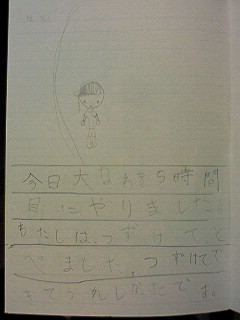 今日大なわを5時間
目にやりました。
わたしは、つずけてと
べました。つずけてで
きてうれしかたです。